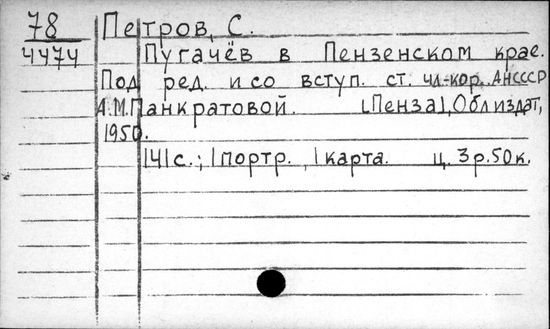 78
4474
Петров, С.
Пугачёв в Пензенском крае.
Под ред. и со вступ. ст. чл.-кор. АНСССР
А.М. Панкратовой. [Пенза], Облиздат,
1950.
141 с.; 1 портр., 1 карта. ц. 3 р. 50 к.